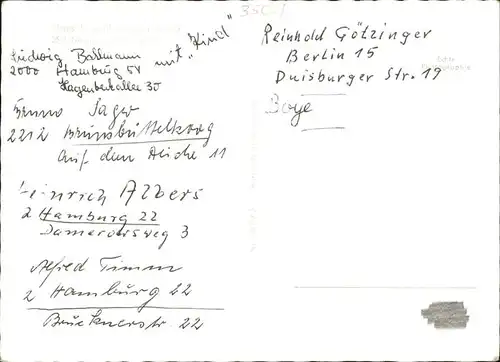 Ludwig Bassmann mit "Kind"
2000 Hamburg 54
Hagenbekallee 30
Bruno Sager
2212 Brunsbüttelkoog
Auf dem Deiche 11
Heinrich Albers
2 Hamburg 22
Damerowsweg 3
Alfred Timm
2 Hamburg 22
Brucknerstr. 22
Reinhold Götzinger
Berlin 15
Duisburger Str. 19
Boye